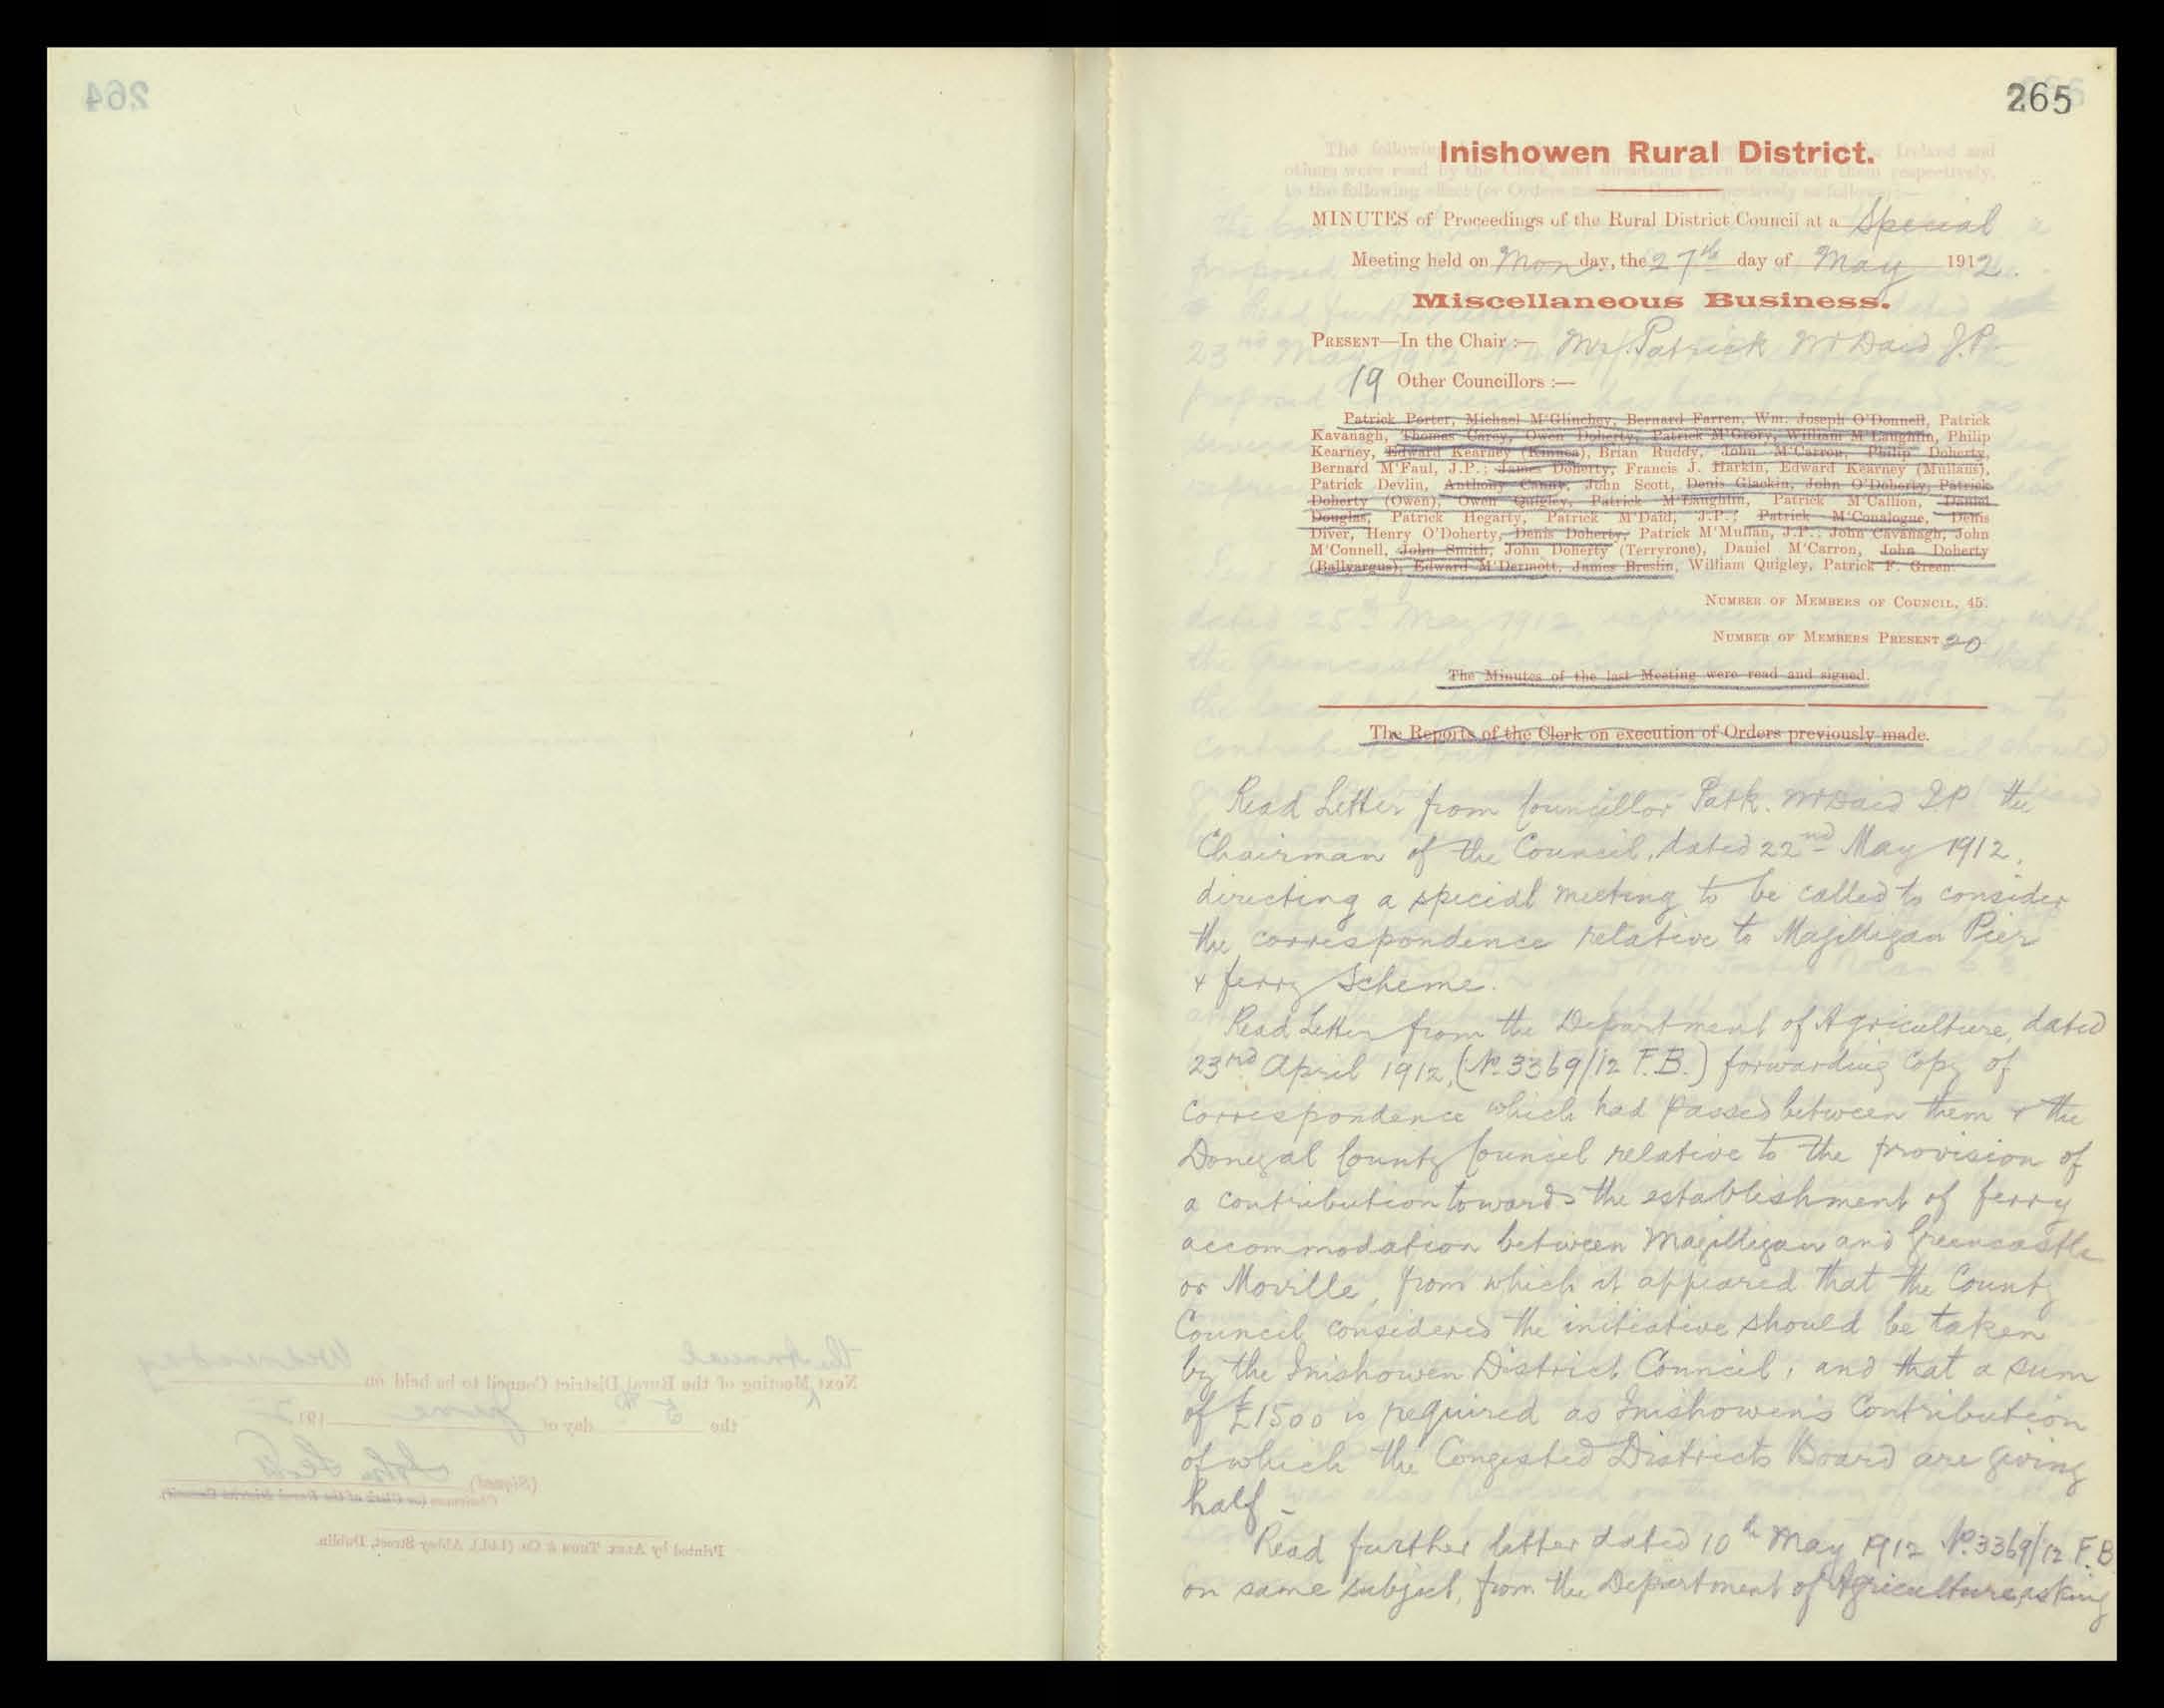 265
Inishowen Rural District.
MINUTES of Proceedings of the Rural District Council at a Special
Meeting held on Monday, the 27th day of May 1912.
Miscellaneous Business.
PRESENT—In the Chair :— Mr. Patrick McDaid J.P.
19 Other Councillors :—
Patrick Porter, Michael M'Glinchey, Bernard Farren, Wm. Joseph O'Donnell, Patrick
Kavanagh, Thomas Carey, Owen Doherty, Patrick M'Grory, William M'Laughlin, Philip
Kearney, Edward Kearney (Kinnea), Brian Ruddy, John M'Carron, Philip Doherty,
Bernard M'Faul, J.P.; James Doherty, Francis J. Harkin, Edward Kearney (Mullans),
Patrick Devlin, Anthony Canny, John Scott, Denis Glackin, John O'Doherty, Patrick
Doherty (Owen), Owen Quigley, Patrick M'Laughlin, Patrick M'Callion, Daniel
Douglas, Patrick Hegarty, Patrick M'Daid, J.P.; Patrick M'Conalogue, Denis
Diver, Henry O'Doherty, Denis Doherty, Patrick M'Mullan, J.P.; John Cavanagh, John
M'Connell, John Smith, John Doherty (Terryrone), Daniel M'Carron, John Doherty
(Ballyargus), Edward M'Dermott, James Breslin, William Quigley, Patrick F. Green.
NUMBER OF MEMBERS OF COUNCIL, 45.
NUMBER OF MEMBERS PRESENT 20
The Minutes of the last Meeting were read and signed.
The Reports of the Clerk on execution of Orders previously made.
Read Letter from Councillor Patk. McDaid J.P. the
Chairman of the Council, dated 22nd May 1912,
directing a special meeting to be called to consider
the correspondence relative to Magilligan Pier
& ferry Scheme.
Read Letter from the Department of Agriculture, dated
23rd April 1912, (No. 3369/12 F.B.) forwarding copy of
correspondence which had passed between them & the
Donegal County Council relative to the provision of
a contribution towards the establishment of ferry
accommodation between Magilligan and Greencastle
or Moville, from which it appeared that the County
Council considered the initiative should be taken
by the Inishowen District Council, and that a sum
of £1500 is required as Inishowen's Contribution
of which the Congested Districts Board are giving
half -
Read further letter dated 10th May 1912 No. 3369/12 F.B
on same subject, from the Department of Agriculture, asking